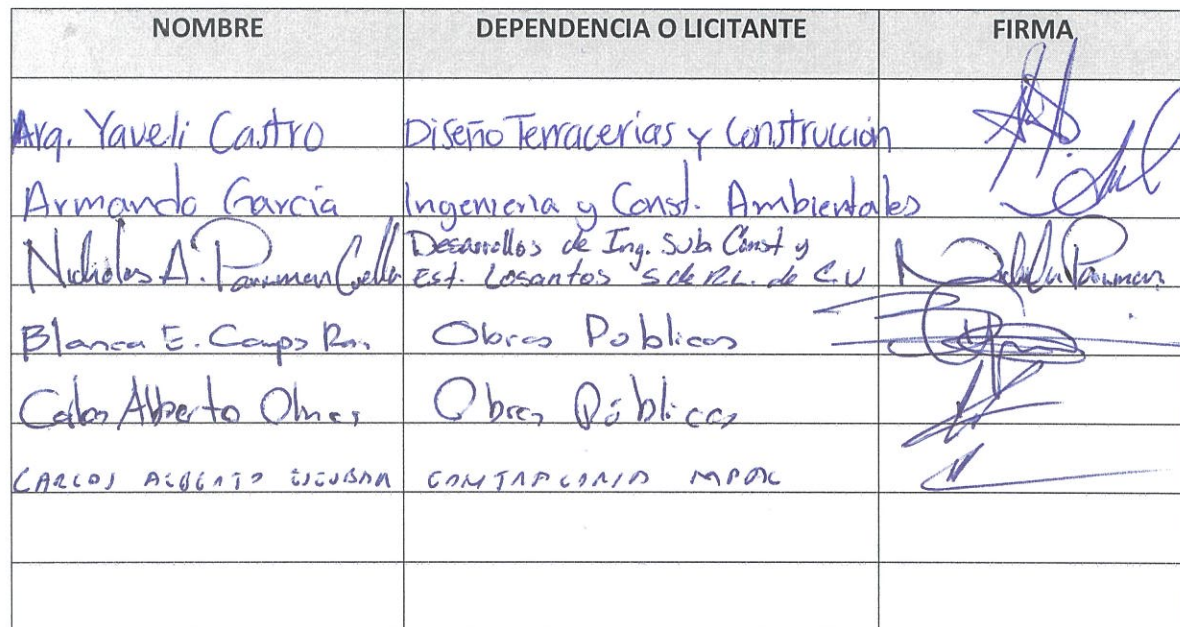 NOMBRE DEPENDENCIA O LICITANTE FIRMA
Arq. Yaveli Castro Diseño Terracerias y Construcción
Armando García Ingenieria y Const. Ambientales
Nicholas A. Desarrollos de Ing. Sub. Const y
Est. Losantos S de R.L. de C.V
Blanca E. Obras Publicas
Carlos Alberto Obras Públicas
CARLOS ALBERTO CONTRALORIA MPAL